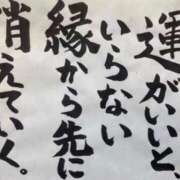 運がいいと、
いらない
縁から先に
消えていく。